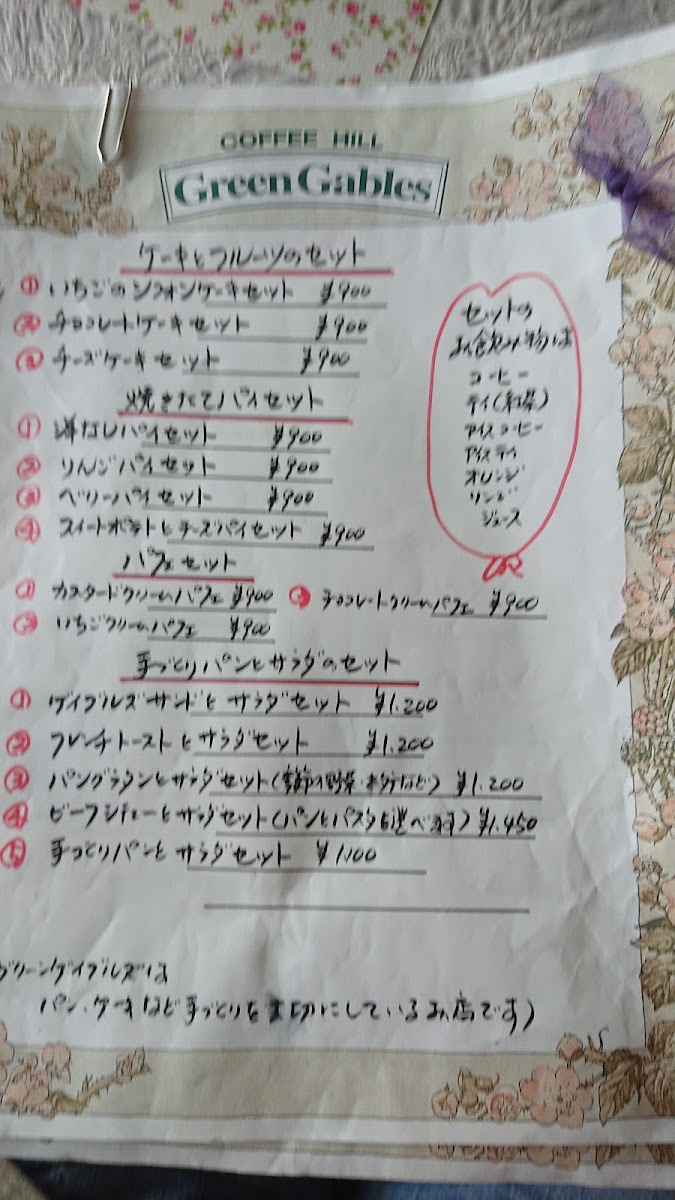 COFFEE HILL
Green Gables
ケーキとフルーツのセット
① いちごのシフォンケーキセット ¥900
② チョコレートケーキセット ¥900
③ チーズケーキセット ¥900
焼きたてパイセット
① 洋なしパイセット ¥900
② りんごパイセット ¥900
③ ベリーパイセット ¥900
④ スイートポテトとチーズパイセット ¥900
パフェセット
① カスタードクリームパフェ ¥900 ③ チョコレートクリームパフェ ¥900
② いちごクリームパフェ ¥900
手づくりパンとサラダのセット
① ゲイブルズサンドとサラダセット ¥1.200
② フレンチトーストとサラダセット ¥1.200
③ パングラタンとサラダセット(季節の野菜・きのこなど) ¥1.200
④ ビーフシチューとサラダセット(パンとパスタも選べます) ¥1.450
⑤ 手づくりパンとサラダセット ¥1100
グリーンゲイブルズは
パン、ケーキなど手づくりを大切にしているお店です)
セットの
お飲み物は
コーヒー
ティ(紅茶)
アイスコーヒー
アイスティ
オレンジ
リンゴ
ジュース